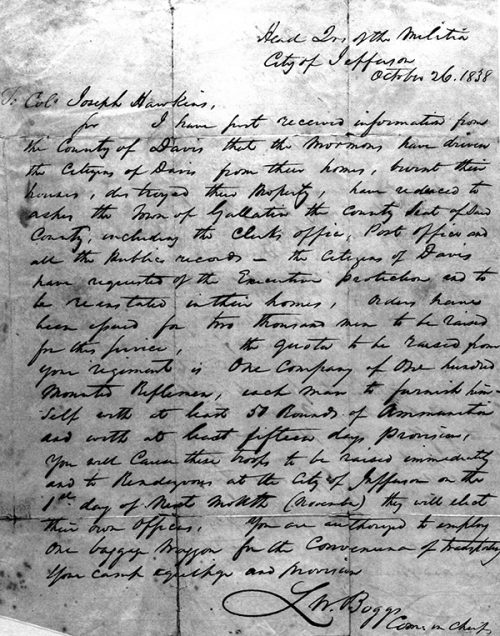 Head Qrs of the Militia
City of Jefferson
October 26. 1838
To Colo Joseph Hawkins,
Sir I have just received information from
the County of Davis that the Mormons have driven
the Citizens of Davis from their homes, burnt their
houses, destroyed their Property, have reduced to
ashes the Town of Gallatin the County Seat of said
County, including the Clerks office, Post office and
all the Publics records — the Citizens of Davis
have requested of the Executive Protection and to
be reinstated in their homes, Orders have
been issued for two thousand men to be raised
for this service, the quota to be raised from
your regiment is One Company of One hundred
Mounted Riflemen, each man to furnish him-
self with at least 50 Rounds of Ammunition
and with at least fifteen days Provision,
You will Cause these troops to be raised immediately
and to Rendezvous at the City of Jefferson on the
1st day of Next Month (November) they will elect
their own Officers, You are authorized to employ
One baggage Waggon for the Convenience of transporting
Your camp equipage and Provision
L W. Boggs
Com in Chief